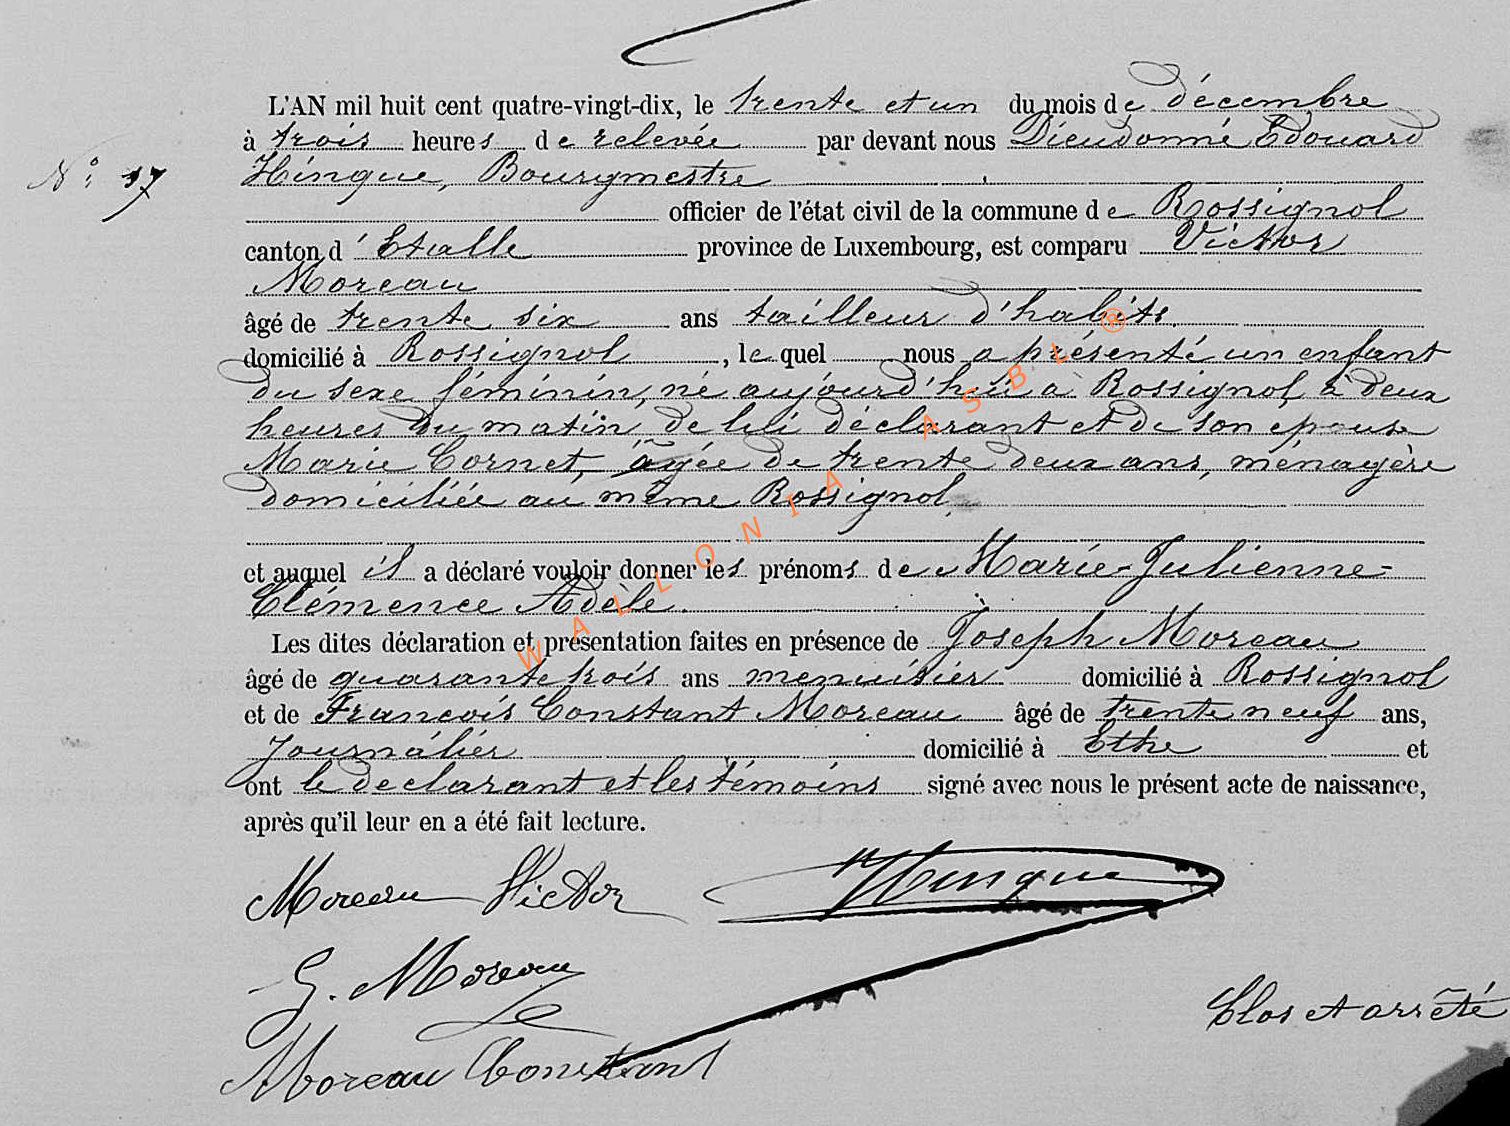 L'AN mil huit cent quatre-vingt-dix, le trente et un du mois de décembre
à trois heures de relevée par devant nous Dieudonné Edouard
N°: 17 Hinque, Bourgmestre
officier de l'état civil de la commune de Rossignol
canton d'Etalle province de Luxembourg, est comparu Victor
Moreau
âgé de trente six ans tailleur d'habits.
domicilié à Rossignol, lequel nous a présenté un enfant
du sexe féminin, né aujourd'hui à Rossignol, à deux
heures du matin, de lui déclarant et de son epouse
Marie Cornet, âgée de trente deux ans, ménagère
domiciliée au même Rossignol,
et auquel il a déclaré vouloir donner les prénoms de Marie-Julienne-
Clémence Adèle.
Les dites déclaration et présentation faites en présence de Joseph Moreau
âgé de quarante trois ans menuisier domicilié à Rossignol
et de François Constant Moreau âgé de trente neuf ans,
Journalier domicilié à Ethe et
ont le declarant et les témoins signé avec nous le présent acte de naissance,
après qu'il leur en a été fait lecture.
Moreau Victor Hinque
J. Moreau
Clos et arrêté
Moreau Constant
WALLONIA ASBL ®